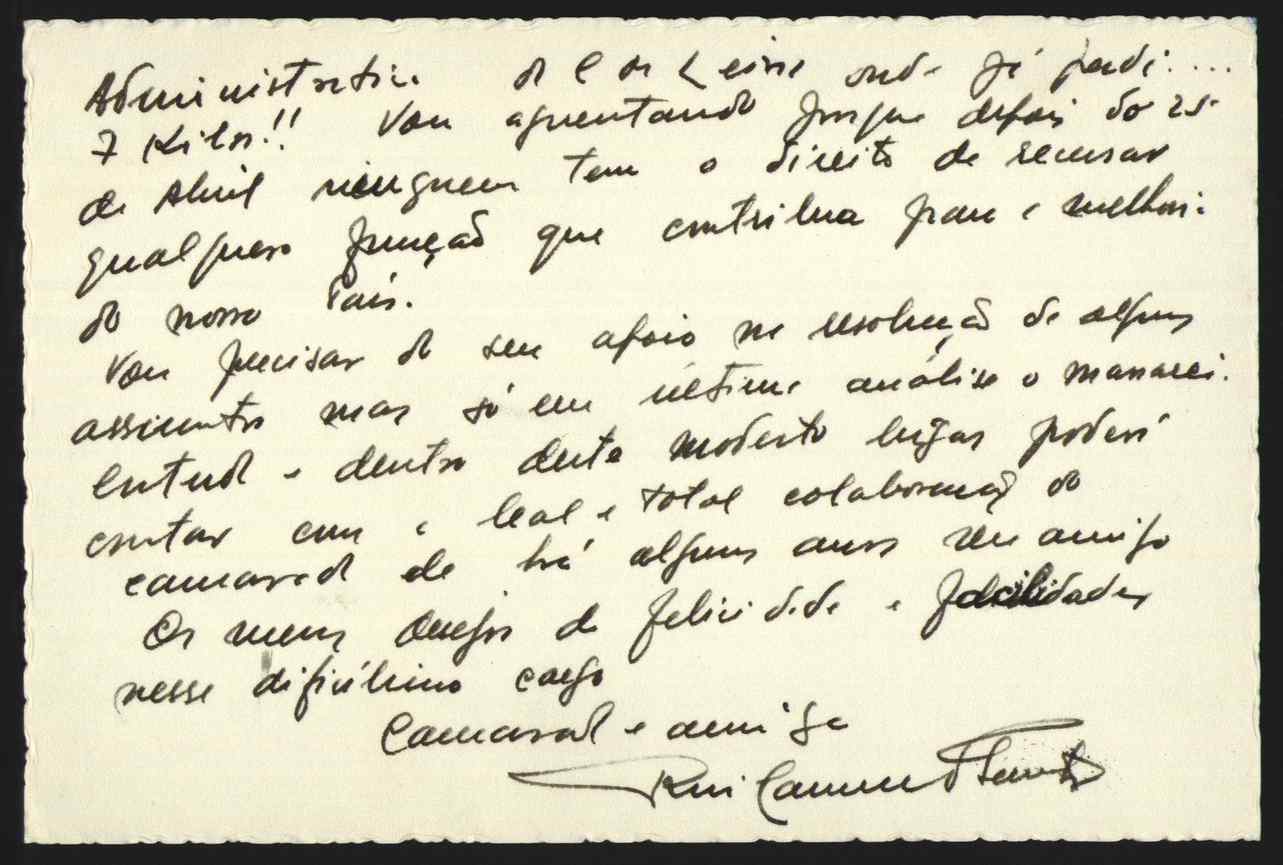 Administrativa da C de Leiria onde já perdi....
7 Kilos!! Vou aguentando porque depois do 25
de Abril ninguem tem o direito de recusar
qualquer função que contribua para a melhoria
do nosso País.
Vou precisar do seu apoio na resolução de alguns
assuntos mas só em última análise o massarei.
Contudo e dentro deste modesto lugar poderá
contar com a leal e total colaboração do
camarada de há alguns anos seu amigo
Os meus desejos de felicidade e felicidades
nesse dificílimo cargo
Camarada e amigo
Rui